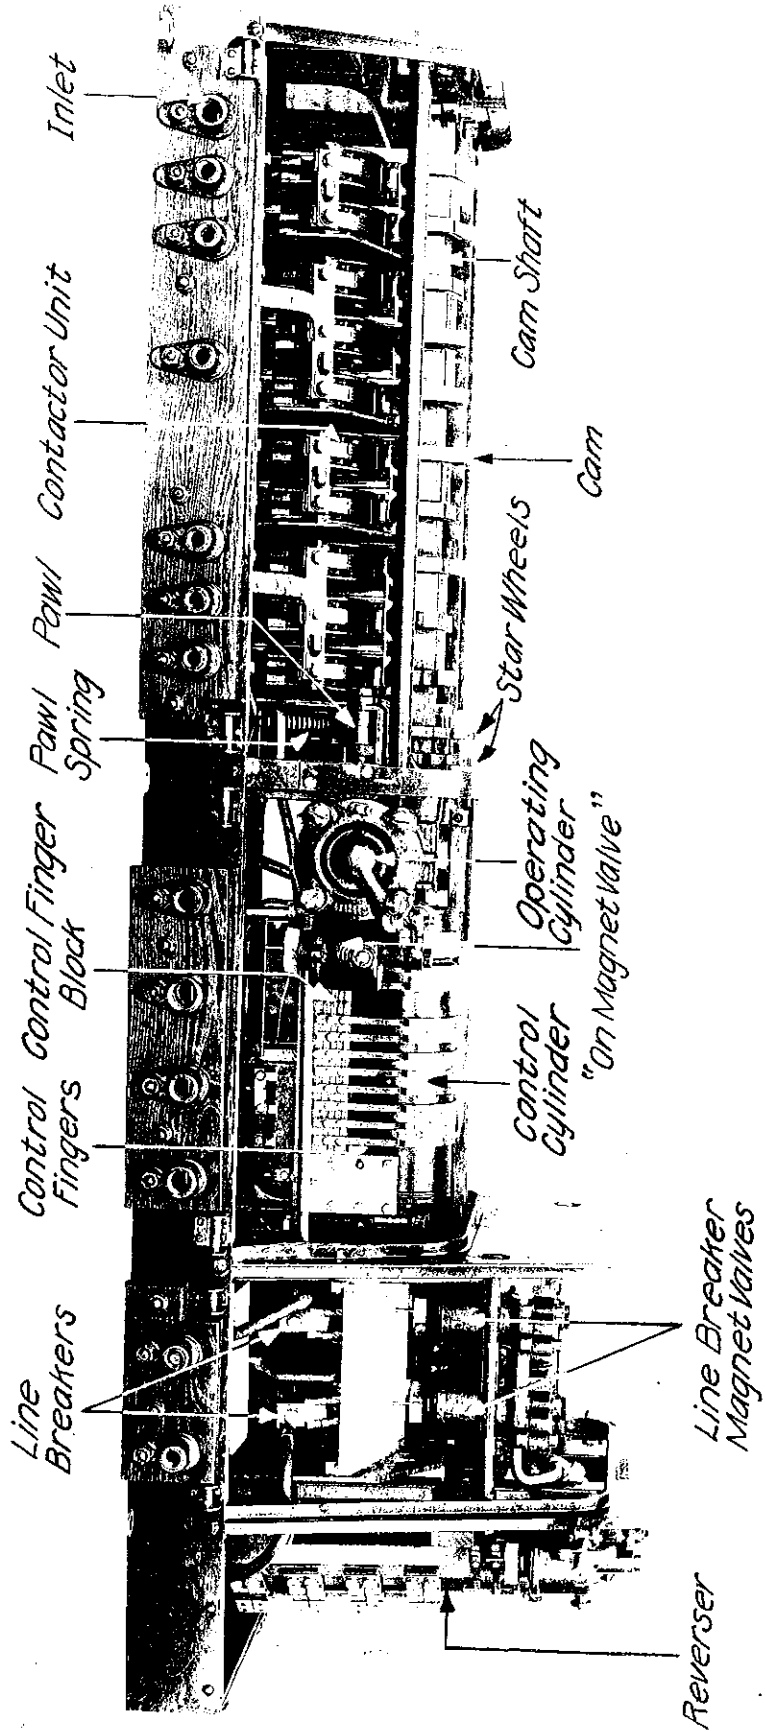 Line
Breakers
Control
Fingers
Control Finger
Block
Pawl
Spring
Pawl
Contactor Unit
Inlet
Reverser
Line Breaker
Magnet Valves
Control
Cylinder
"On Magnet Valve"
Operating
Cylinder
Star Wheels
Cam
Cam Shaft